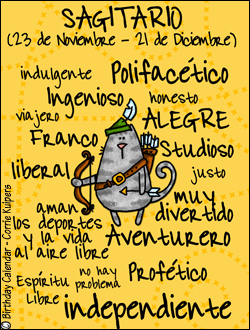 SAGITARIO
(23 de Noviembre - 21 de Diciembre)
indulgente Polifacético
Ingenioso honesto
viajero ALEGRE
Franco Studioso
liberal justo
aman los deportes y la vida al aire libre
muy divertido
Aventurero
Espíritu Libre
no hay problema
Profético
independiente
© Birthday Calendar - Corrie Kuipers